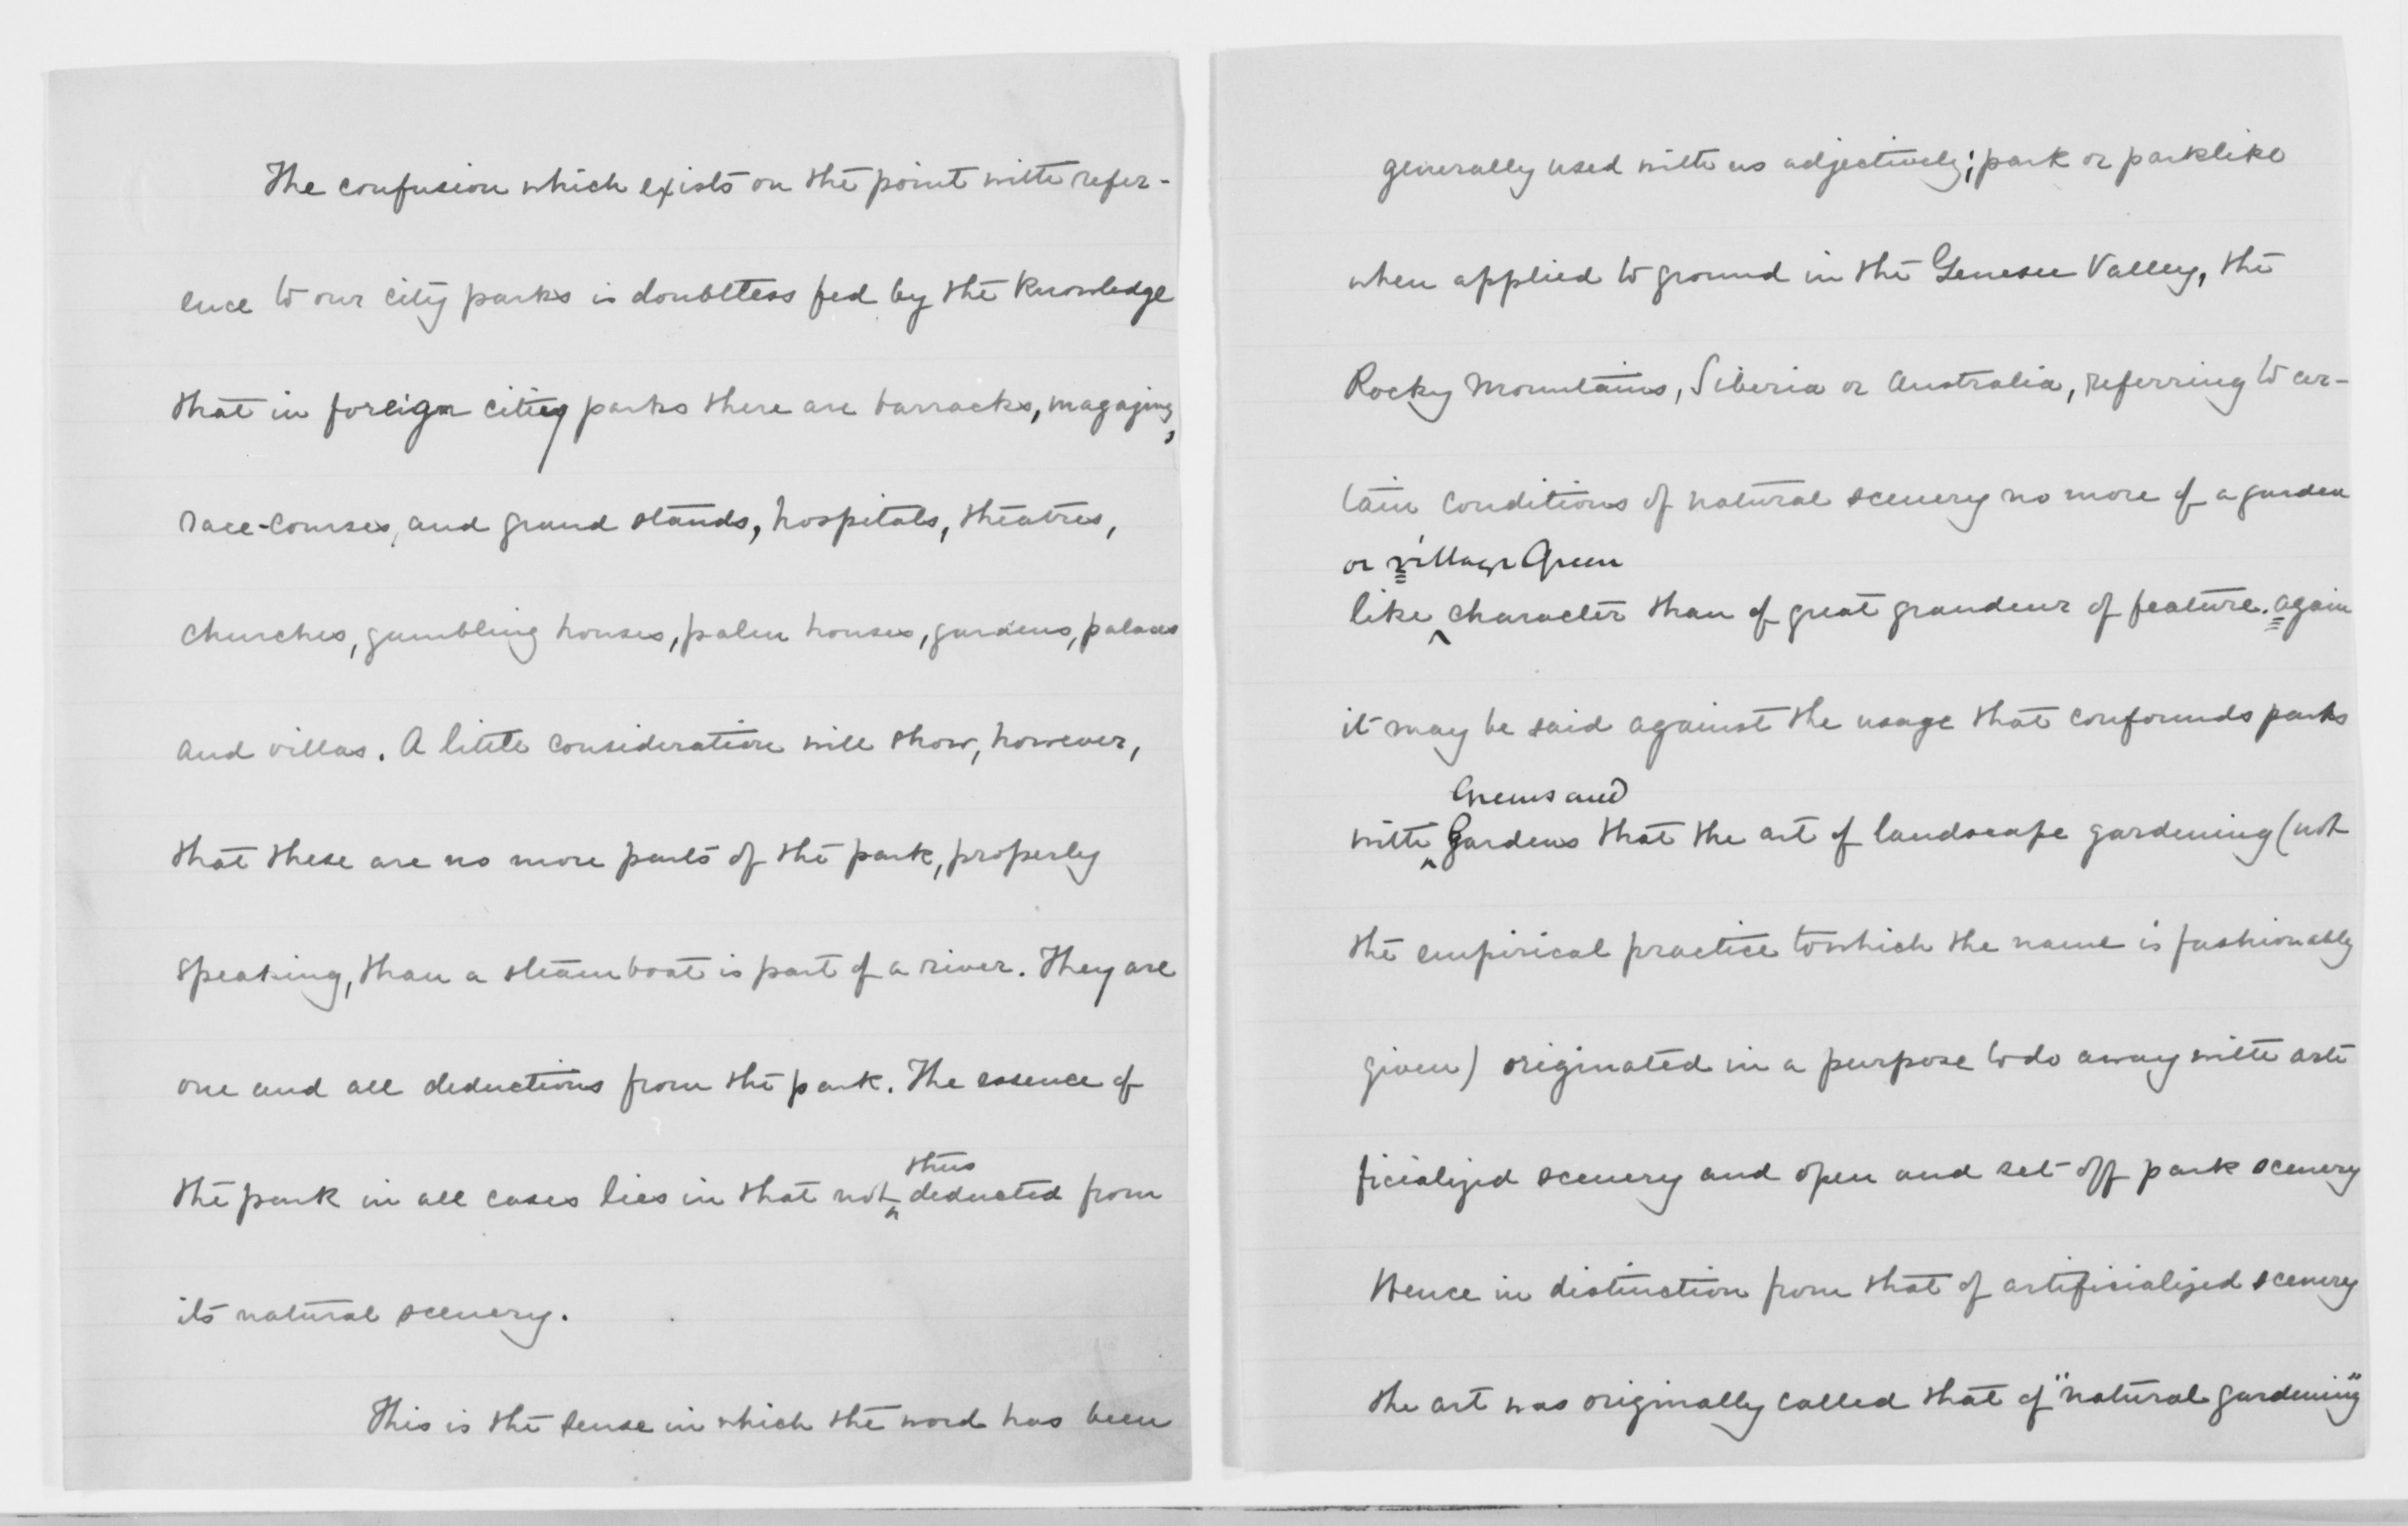 The confusion which exists on the point with refer-
ence to our city parks is doubtless fed by the knowledge
that in foreign city parks there are barracks, magazines,
race-courses, and grand stands, hospitals, theatres,
churches, gambling houses, palm houses, gardens, palaces
and villas. A little consideration will show, however,
that these are no more parts of the park, properly
speaking, than a steamboat is part of a river. They are
one and all deductions from the park. The essence of
thus
the park in all cases lies in that not ^ deducted from
its natural scenery.
This is the sense in which the word has been
generally used with us adjectively; park or parklike
when applied to ground in the Genesee Valley, the
Rocky Mountains, Siberia or Australia, referring to cer-
tain conditions of natural scenery no more of a garden
or village Green
like ^ character than of great grandeur of feature. again
it may be said against the usage that confounds parks
Greens and
with ^ Gardens that the art of landscape gardening (not
the empirical practice to which the name is fashionably
given) originated in a purpose to do away with arti
ficialized scenery and open and set off park scenery
Hence in distinction from that of artificialized scenery
the art was originally called that of "natural gardening"